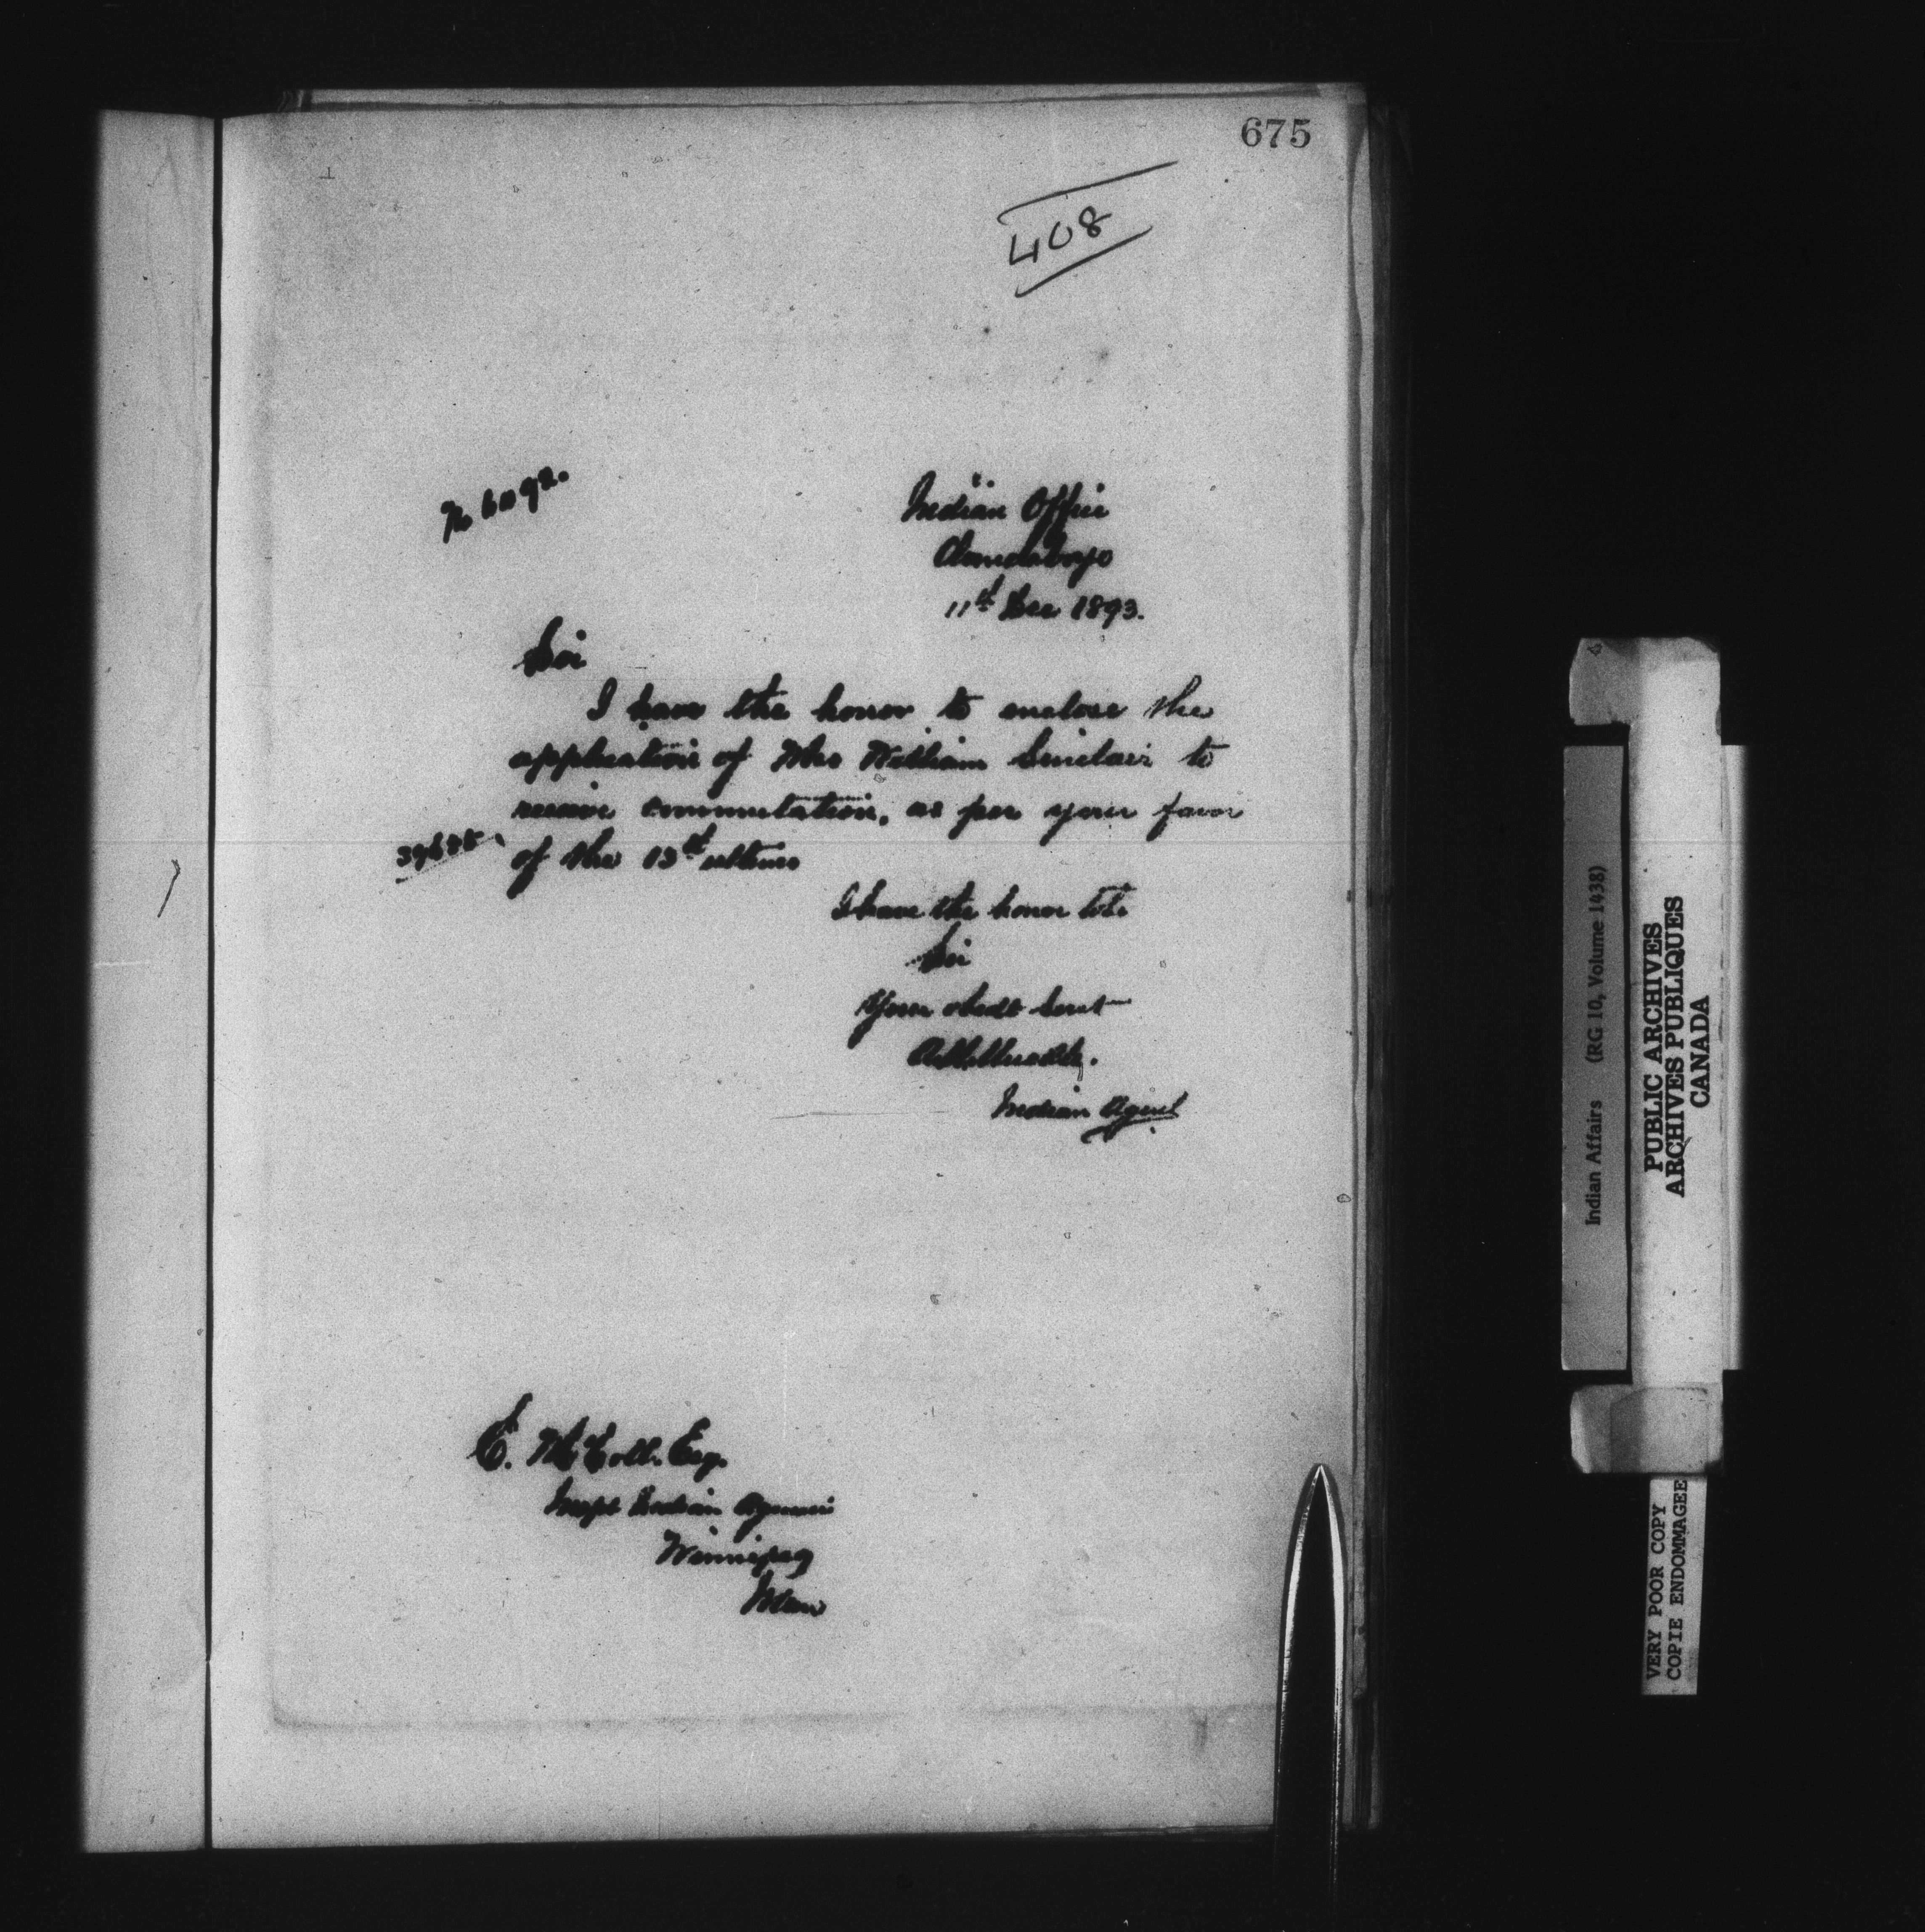 675
408
Indian Office
11th Dec 1893.
Sir
I have the honor to enclose the
application of Mrs William Sinclair to
receive commutation, as per your favor
of the 13th ultimo
I have the honor to be
Sir
Your obedt Servt
Indian Agent
E. McColl. Esq.
Inspt Indian Agencies
Winnipeg
Man
Indian Affairs (RG 10, Volume 1438)
PUBLIC ARCHIVES
ARCHIVES PUBLIQUES
CANADA
VERY POOR COPY
COPIE ENDOMMAGEE